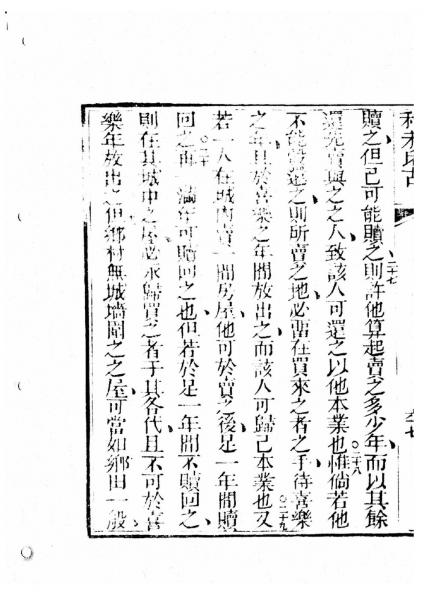 贖之但己可能贖之二十七則許他算起賣之多少年而以其餘
還先賣與之之人致該人可還之以他本業也二十八惟倘若他
不能設還之則所賣之地必留在買來之者之手待喜樂
之年且於喜樂之年間放出之而該人可歸己本業也二十九又
若一人在城內賣一間房屋他可於賣之後足一年間贖
回之再一滿年可贖回之也三十但若於足一年間不贖回之
則在其城中之屋必永歸買之者于其各代且不可於喜
樂年放出之但鄉村無城墻圍之之屋可當如鄉田一般